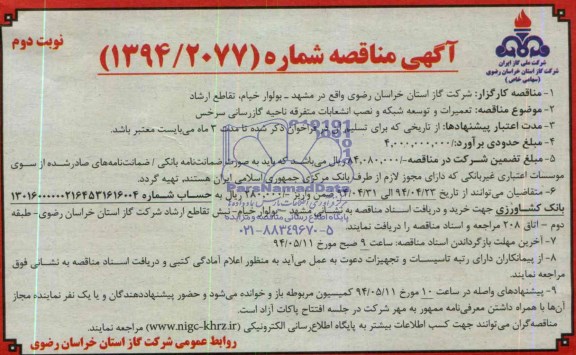 نوبت دوم
شرکت ملی گاز ایران
شرکت گاز استان خراسان رضوی
(سهامی خاص)
آگهی مناقصه شماره (۱۳۹۴/۲۰۷۷)
۱- مناقصه کارگزار: شرکت گاز استان خراسان رضوی واقع در مشهد ـ بولوار خیام، تقاطع ارشاد
۲- موضوع مناقصه: تعمیرات و توسعه شبکه و نصب انشعابات متفرقه ناحیه گازرسانی سرخس
۳- مدت اعتبار پیشنهادها: از تاریخی که برای تسلیم آن در فراخوان ذکر شده تا مدت ۳ ماه می‌بایست معتبر باشد.
۴- مبلغ حدودی برآورد: ۴,۰۰۰,۰۰۰,۰۰۰/
۵- مبلغ تضمین شرکت در مناقصه-/۸۴,۰۸۰,۰۰۰ریال می‌باشد که باید به صورت ضمانت‌نامه بانکی / ضمانت‌نامه‌های صادرشده از سوی
موسسات اعتباری غیربانکی که دارای مجوز لازم از طرف بانک مرکزی جمهوری اسلامی ایران هستند، تهیه گردد.
۶- متقاضیان می‌توانند از تاریخ ۹۴/۰۴/۲۳ الی ۹۴/۰۴/۳۱ ضمن واریز ریال به حساب شماره
بانک کشاورزی جهت خرید و دریافت اسناد مناقصه به نشانی مشهد -بولوار خیام-نبش تقاطع ارشاد شرکت گاز استان خراسان رضوی- طبقه
دوم - اتاق ۲۰۸ مراجعه و اسناد مناقصه را دریافت نمایند.
ParaNamadData
پایگاه اطلاع رسانی مناقصه و مزایده
۰۲۱-۸۸۳۴۹۶۷۰-۵
۷- آخرین مهلت بازگرداندن اسناد مناقصه: ساعت ۹ صبح مورخ ۹۴/۰۵/۱۱
۸- از پیمانکاران دارای رتبه تاسیسات و تجهیزات دعوت به عمل می‌آید به منظور اعلام آمادگی کتبی و دریافت اسناد مناقصه به نشانی فوق
مراجعه نمایند.
۹- پیشنهادهای واصله در ساعت ۱۰ مورخ ۹۴/۰۵/۱۱ کمیسیون مربوطه باز و خوانده می‌شود و حضور پیشنهاددهندگان و یا یک نفر نماینده مجاز
آن‌ها با همراه داشتن معرفی‌نامه ممهور به مهر شرکت در جلسه افتتاح پاکات آزاد است.
مناقصه‌گران می‌توانند جهت کسب اطلاعات بیشتر به پایگاه اطلاع‌رسانی الکترونیکی (www.nigc-khrz.ir) مراجعه نمایند.
روابط عمومی شرکت گاز استان خراسان رضوی